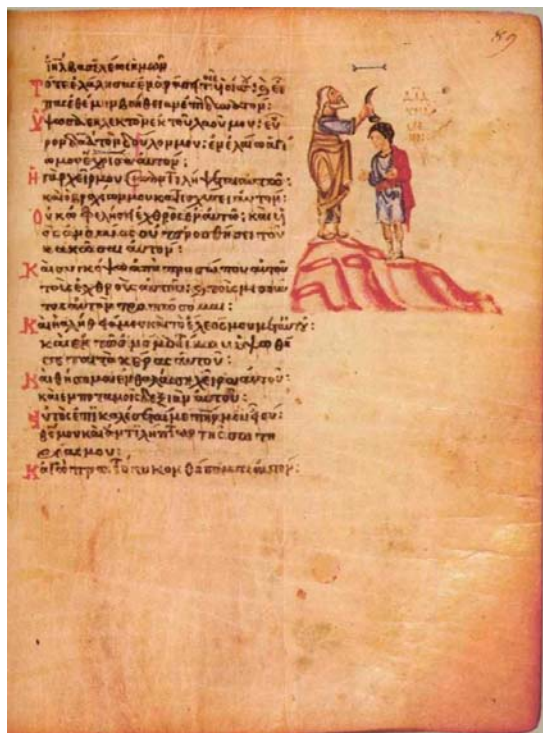 ιη̅λ βασιλέως ἡμῶν
Τότε ἐλάλησας ἐν ὁράσει τοῖς υἱοῖς σου καὶ εἶ
πας ἐθέμην βοήθειαν ἐπὶ δυνατόν:
Ὕψωσα ἐκλεκτὸν ἐκ τοῦ λαοῦ μου: εὗ
ρον δα̅δ τὸν δοῦλόν μου: ἐν ἐλαίω ἁγί
ω μου ἔχρισα αὐτόν:
Ἡ γὰρ χείρ μου συναντιλήψεται αὐτῶ:
καὶ ὁ βραχίων μου κατισχύσει αὐτόν:
Οὐκ ὠφελήσει ἐχθρὸς ἐν αὐτῶ: καὶ υἱ
ὸς ἀνομίας οὐ προσθήσει τοῦ
κακῶσαι αὐτόν:
Καὶ συγκόψω ἀπὸ προσώπου αὐτοῦ
τοὺς ἐχθροὺς αὐτοῦ: καὶ τοὺς μισοῦν
τας αὐτὸν τροπώσομαι:
Καὶ ἡ ἀλήθειά μου καὶ τὸ ἔλεός μου μετ' αὐτοῦ:
καὶ ἐν τῶ ὀνόματί μου ὑψωθή
σεται τὸ κέρας αὐτοῦ:
Καὶ θήσομαι ἐν θαλάσση χεῖρα αὐτοῦ:
καὶ ἐν ποταμοῖς δεξιὰν αὐτοῦ:
Αὐτὸς ἐπικαλέσεταί με πη̅ρ μου εἶ σύ:
θς̅ μου καὶ ἀντιλήπτωρ τῆς σωτη
ρίας μου:
Κἀγὼ πρωτότοκον θήσομαι αὐτόν:
89
ΔΑΔ